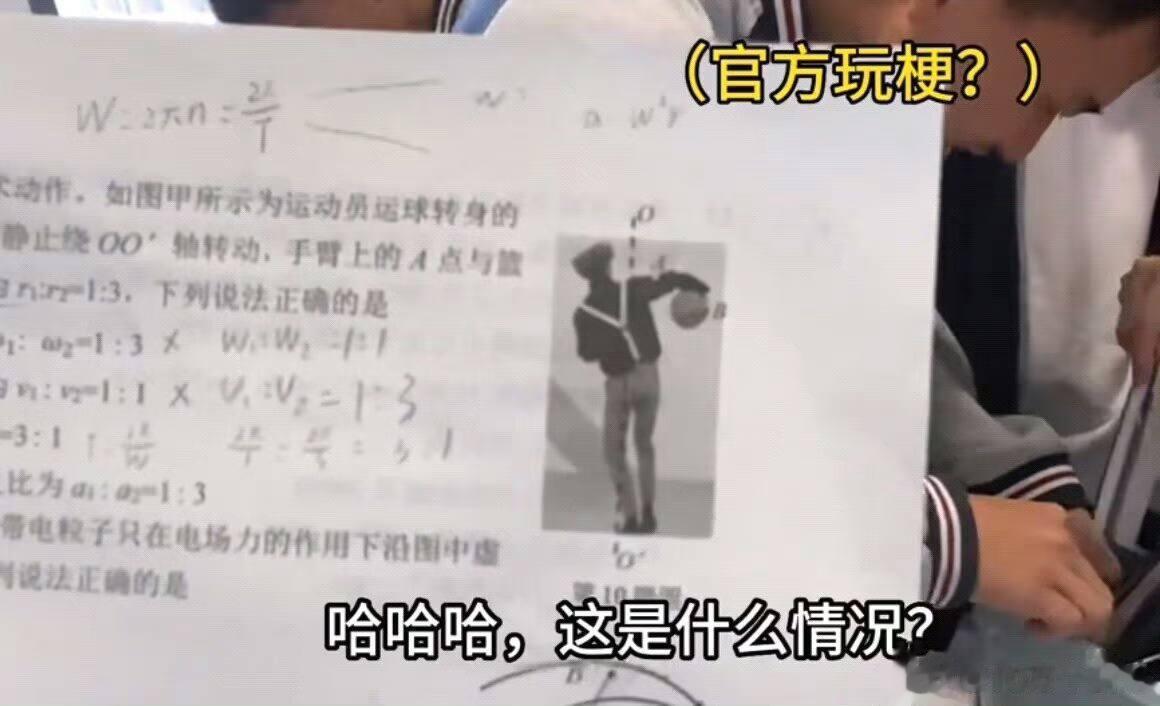 （官方玩梗？）
W=2πn=2π/T
a W²r
术动作。如图甲所示为运动员运球转身的
静止绕OO′轴转动，手臂上的A点与篮
r₁:r₂=1:3，下列说法正确的是
ω₂=1:3 × W₁:W₂=1:1
v₁:v₂=1:1 × V₁:V₂=1:3
=3:1
比为a₁:a₂=1:3
带电粒子只在电场力的作用下沿图中虚
列说法正确的是
O
A
B
O′
第10题图
哈哈哈，这是什么情况？
B